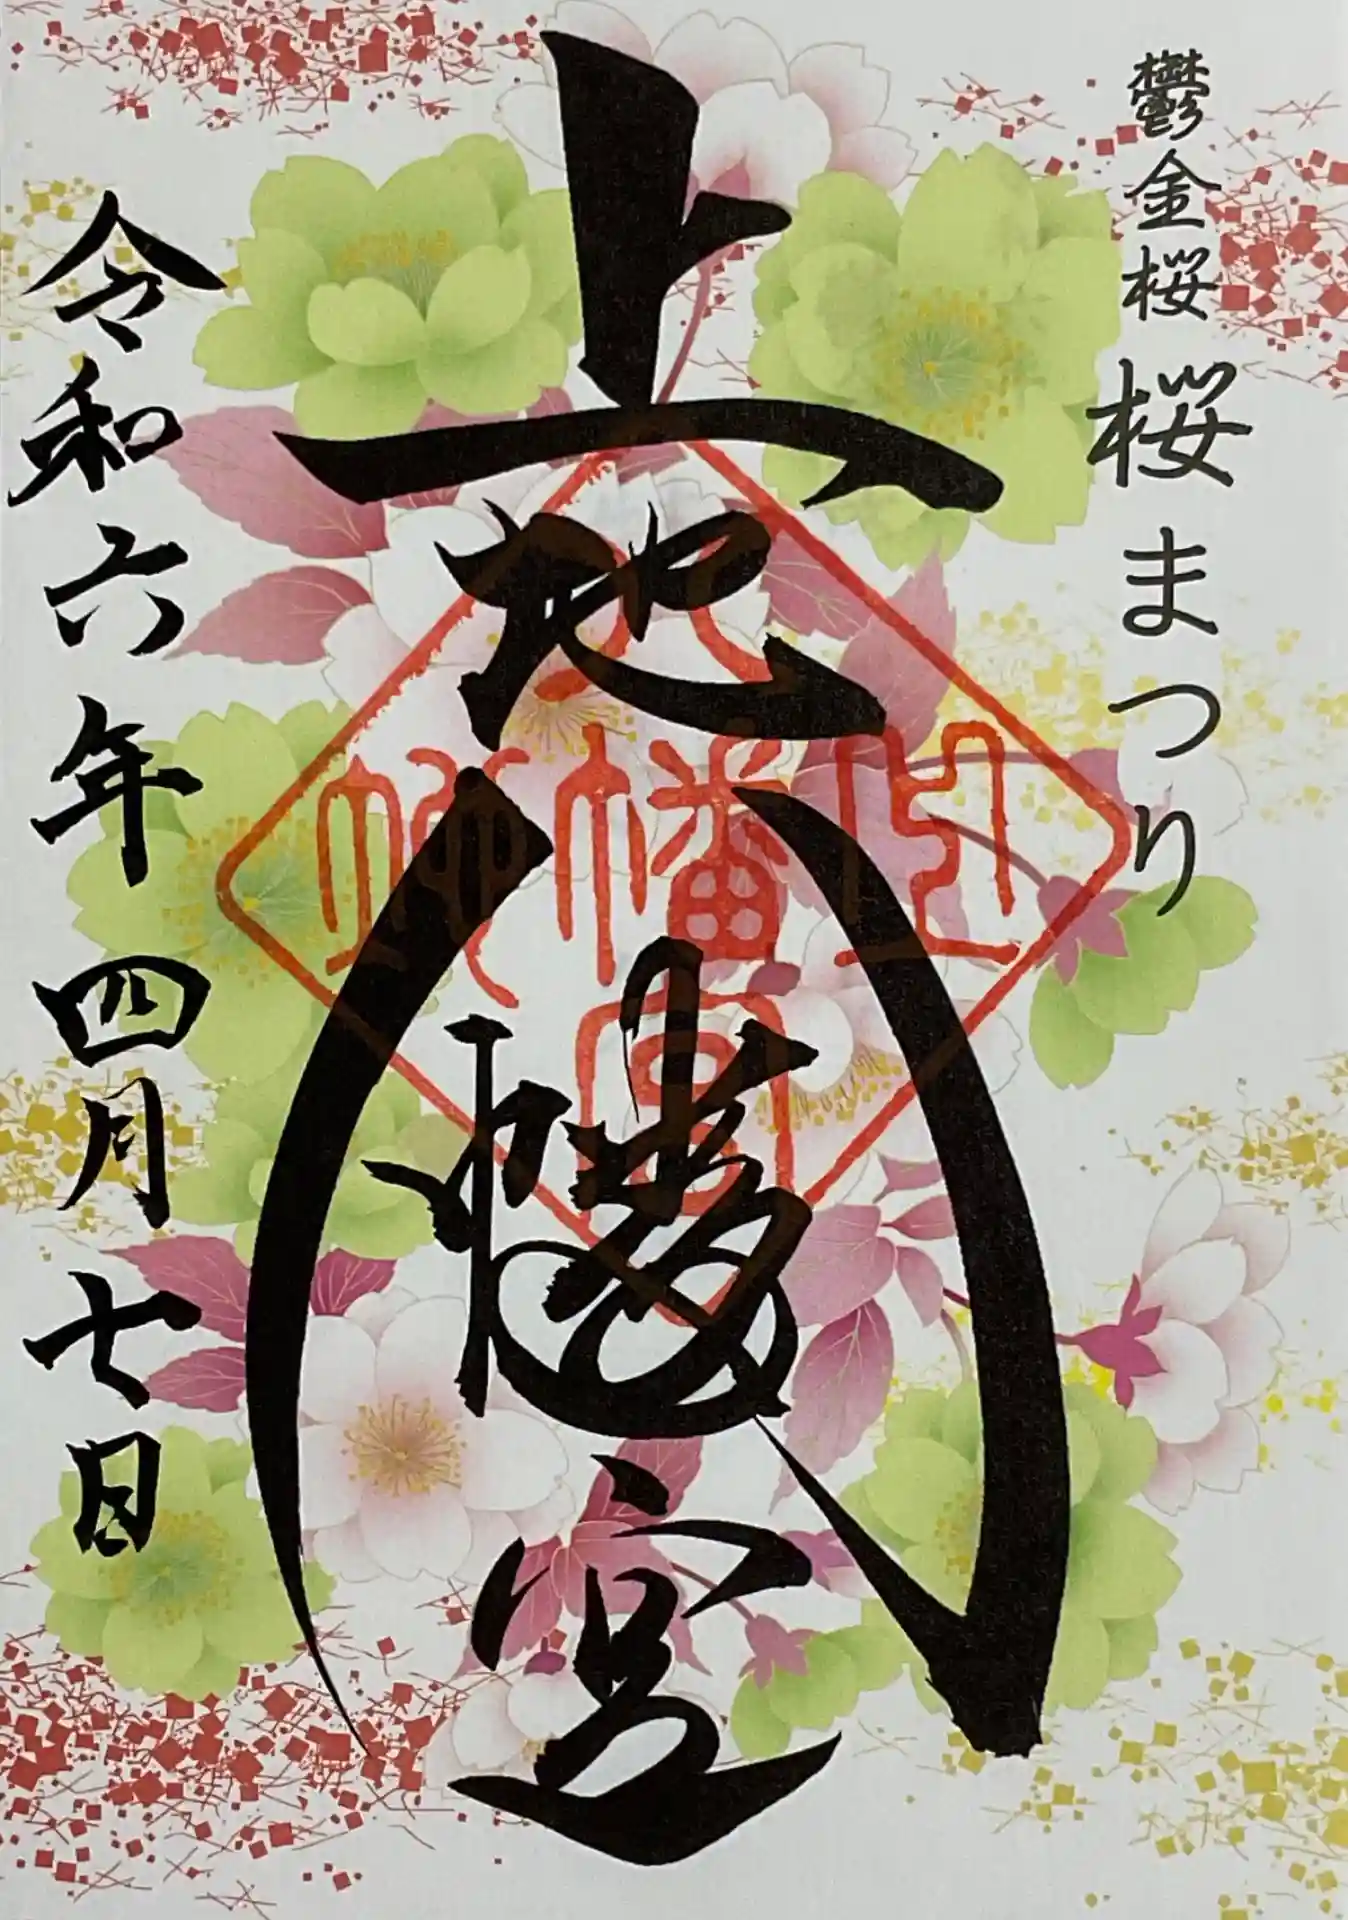 鬱金桜 桜まつり
上地八幡宮
上地八幡宮
令和六年四月七日